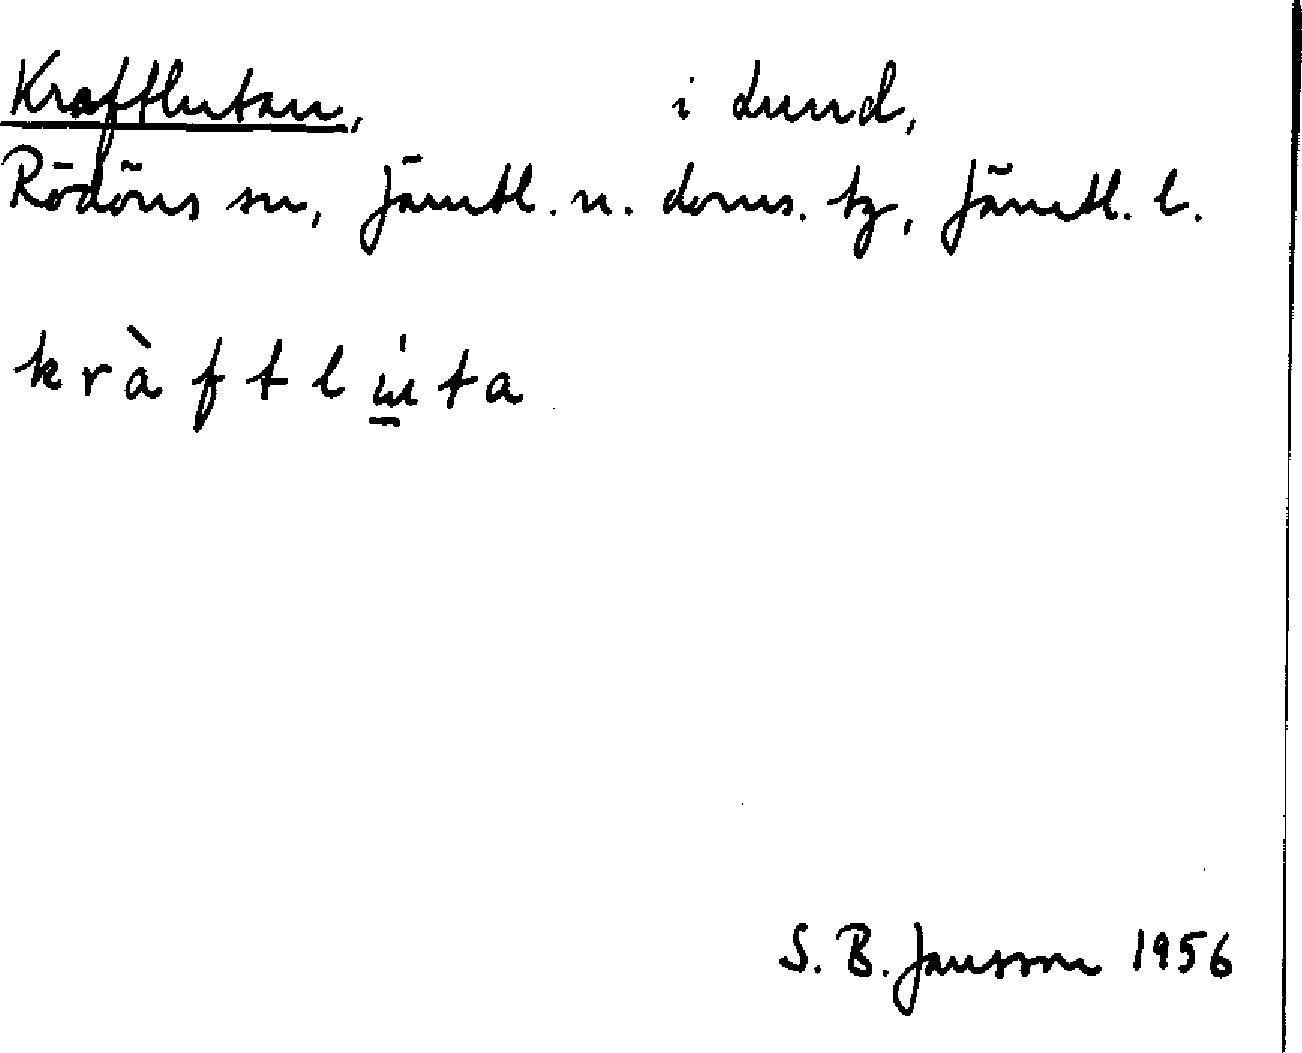 Kraftlutan, i Lund,
Rödöns sn, Jämtl. n. doms. tg, Jämtl. l.
kràftlu̠ta
S. B. Jansson 1956